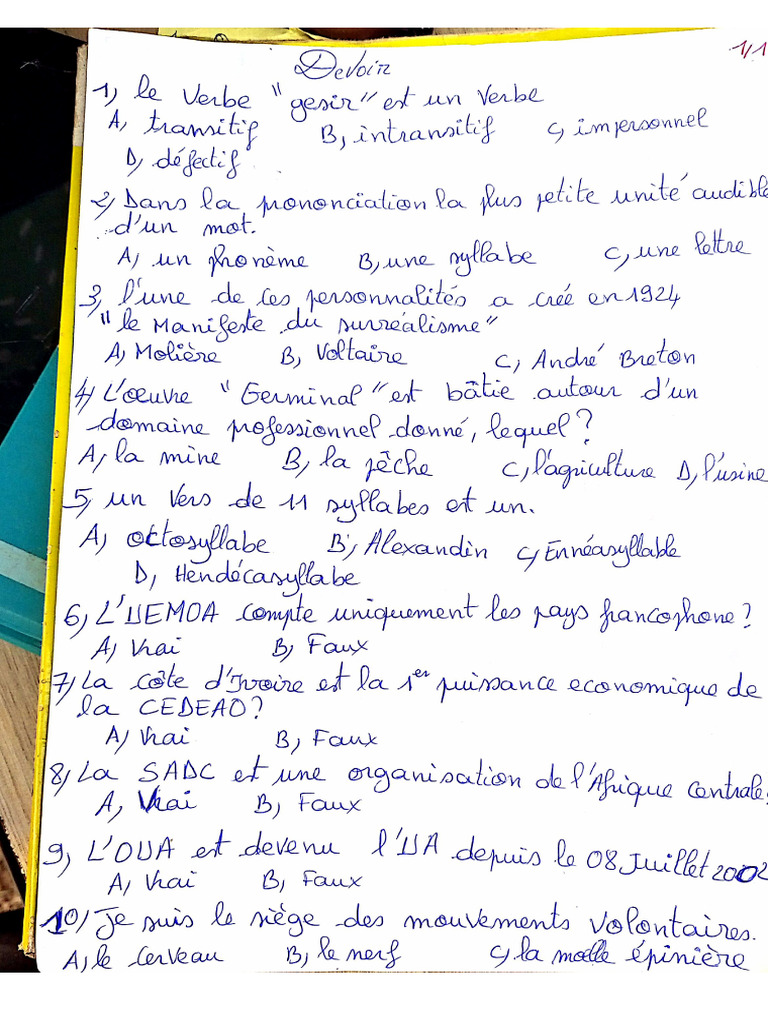 1/1
Devoir
1) le Verbe "gesir" est un Verbe
A, transitif B, intransitif C, impersonnel
D, défectif
2) Dans la prononciation la plus petite unité audible
d'un mot.
A, un phonème B, une syllabe C, une lettre
3, l'une de ces personnalités a créé en 1924
"le Manifeste du surréalisme"
A, Molière B, Voltaire C, André Breton
4) L'oeuvre "Germinal" est bâtie autour d'un
domaine professionnel donné, lequel?
A, la mine B, la pêche C, l'agriculture D, l'usine
5, un Vers de 11 syllabes est un.
A, octosyllabe B, Alexandin C, Ennéasyllable
D, Hendécasyllabe
6) L'UEMOA compte uniquement les pays francophone?
A) Vrai B) Faux
7) La côte d'Ivoire est la 1er puissance economique de
la CEDEAO?
A) Vrai B, Faux
8) La SADC est une organisation de l'Afrique centrale.
A, Vrai B) Faux
9) L'OUA est devenu l'UA depuis le 08 Juillet 2002
A) Vrai B, Faux
10) Je suis le siège des mouvements volontaires.
A, le Cerveau B, le nerf C, la moelle épinière